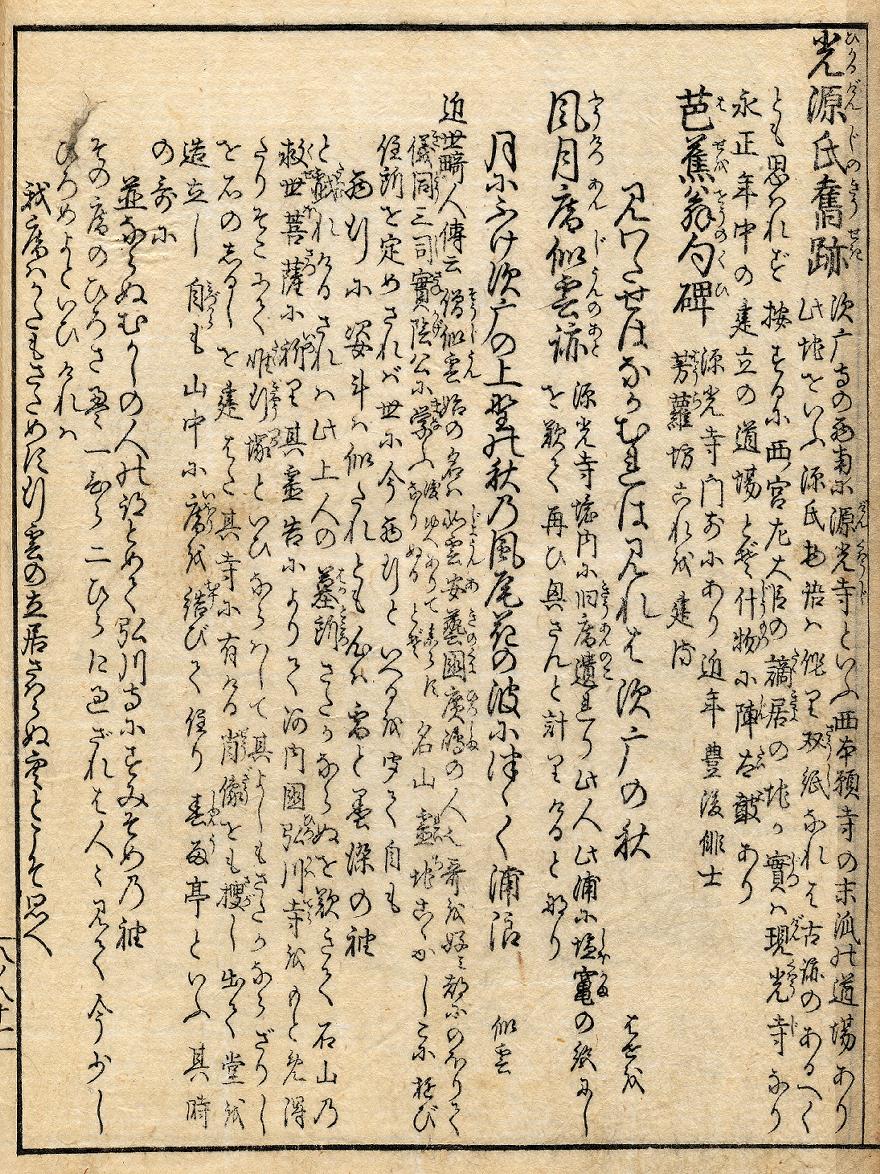 光源氏舊跡 須广寺の西南に源光寺といふ西本願寺の末派の道場あり
此地をいふ源氏物語ハ作り双紙なれど古跡のあるべく
とも思ハれず按ずるに西宮左大臣の謫居の地か實ハ現光寺なり
永正年中の建立の道場とぞ什物に陣太鼓あり
芭蕉翁句碑 源光寺門前にあり近年豊後俳士
芳蘿坊これを建る
見わたせはなかむれは見れは須广の秋 はせを
風月庵似雲跡 源光寺境内に旧庵遺れり此人此浦に塩竃の絶にし
を歎て再び興さんと計りけると也
月にふけ須广の上野の秋の風尾花の波につゞく浦浪 似雲
近世畸人傳云僧似雲始の名ハ如雲安藝國廣嶋の人也哥を好ミ都にのぼりて
儀同三司實陰公に学ふ後ゆへありて
名山霊地こゝかしこに遊び
住所を定めざれバ世に今西行といへるを聞て自も
西行に姿斗ハ似たれども心ハ雪と墨染の袖
と戯れけるされハ此上人の墓所さだかならぬを歎きて石山の
救世菩薩に祈り其霊告によりて河内國弘川寺をもとめ得
たりそこにて 西行塚といひならハして其よしもさだかならざりし
を石のしるしを建また其寺に有ける肖像をも捜し出て堂を
造立し自も山中に庵を結びて住り春雨亭といふ其時
の哥に
並ならぬむかしの人の跡とめて弘川寺にすみそめの袖
その庵のひろさ畳一ひら二ひらに過ざれば人々見て今少し
ひろめよといひけれハ
我庵ハかたもさだめず行雲の立居さはらぬ空とこそ思へ